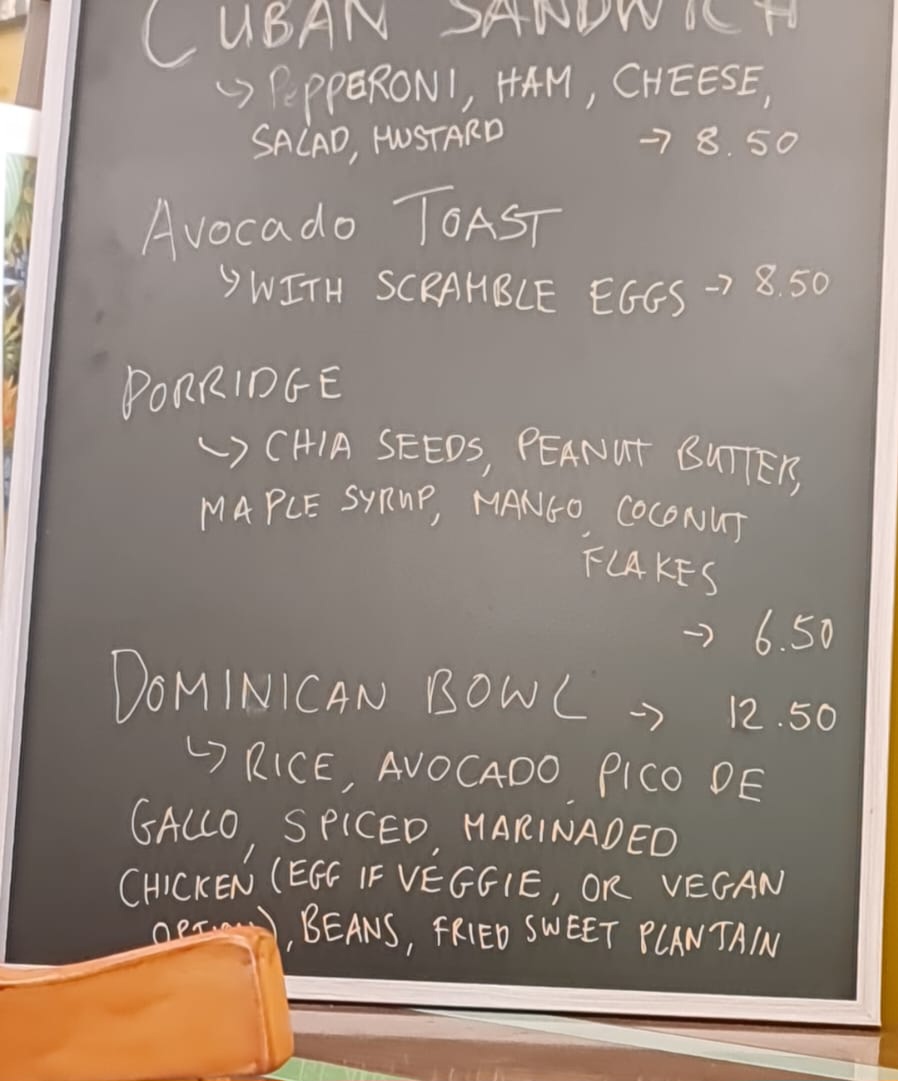 CUBAN SANDWICH
↳ PEPPERONI, HAM, CHEESE,
SALAD, MUSTARD → 8.50
Avocado TOAST
↳ WITH SCRAMBLE EGGS → 8.50
PORRIDGE
↳ CHIA SEEDS, PEANUT BUTTER,
MAPLE SYRUP, MANGO, COCONUT
FLAKES
→ 6.50
DOMINICAN BOWL → 12.50
↳ RICE, AVOCADO, PICO DE
GALLO, SPICED, MARINADED
CHICKEN (EGG IF VEGGIE, OR VEGAN
OPTION), BEANS, FRIED SWEET PLANTAIN